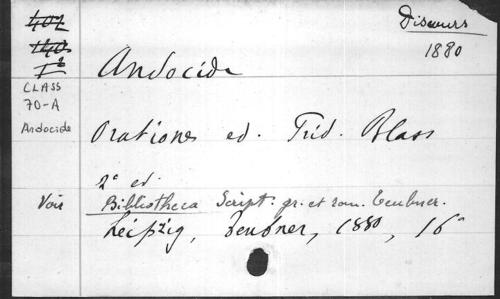 Discours
1880
402
140
I²
CLASS
70-A
Andocide
Andocide
Orationes ed. Frid. Blass
2ᵃ ed.
Voir Bibliotheca Script. gr. et rom. Teubner.
Leipzig, Teubner, 1880, 16°